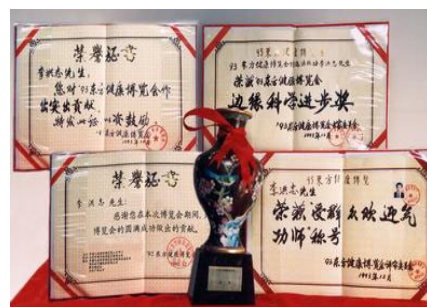 荣誉证书
李洪志先生:
您对'93东方健康博览会作
出突出贡献,
特发此证以资鼓励。
'93东方健康博览会
1993年12月
'93东方健康博览会
李洪志先生
荣获'93东方健康博览会
边缘科学进步奖
'93东方健康博览会评审委员会
1993年12月
荣誉证书
李洪志先生:
感谢您在本次博览会期间,
博览会的圆满成功做出的贡献。
'92东方健康博览会
'93东方健康博览
李洪志先生
荣获受群众欢迎气
功师称号
'93东方健康博览会评审委员会
1993年12月